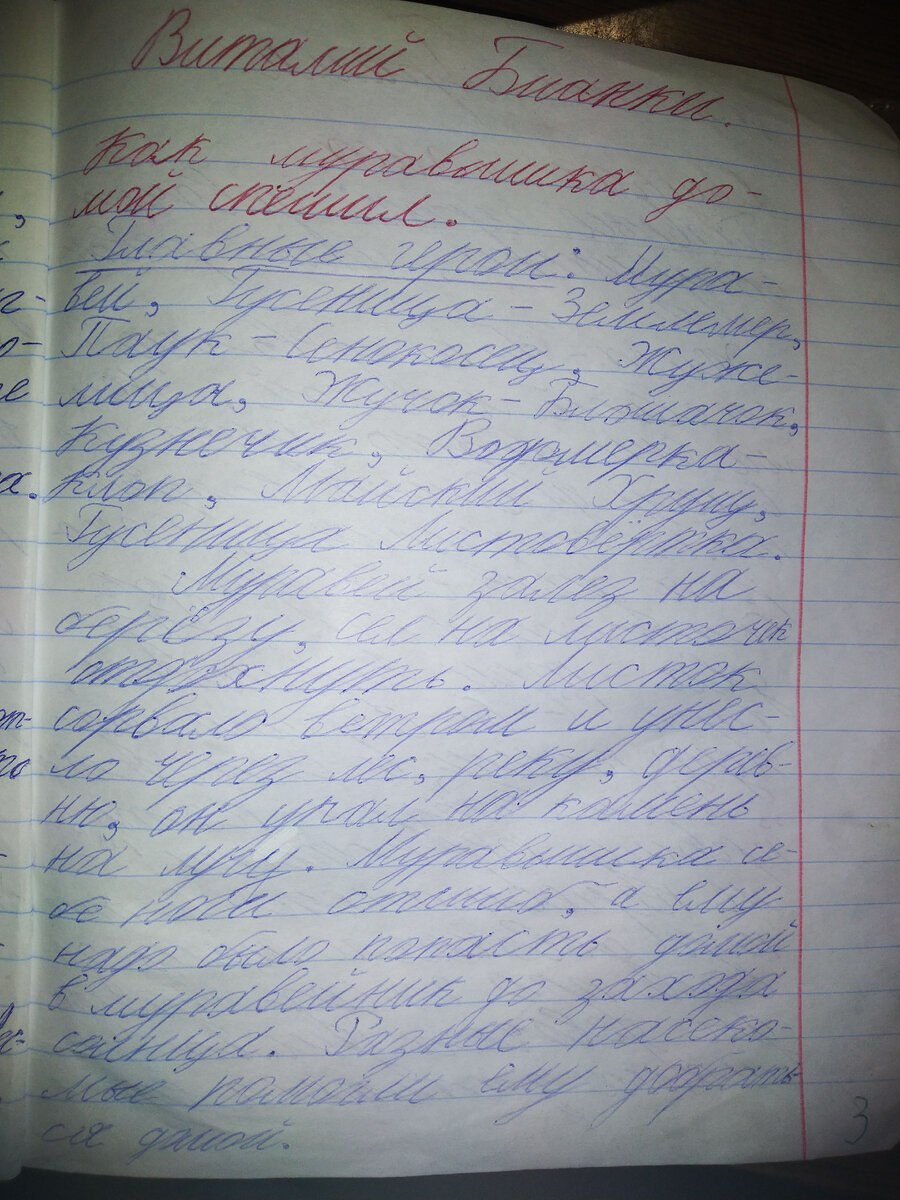 Виталий Бианки.
Как муравьишка до-
мой спешил.
Главные герои: Мура-
вей, Гусеница - Землемер,
Паук - Сенокосец, Жуже-
лица, Жучок - Блошачок,
Кузнечик, Водомерка -
Клоп, Майский Хрущ,
Гусеница Листовёртка.
Муравей залез на
берёзу, сел на листочек
отдохнуть. Листок
сорвало ветром и унес-
ло через лес, реку, дерев-
ню, он упал на камень
на лугу. Муравьишка се-
бе ноги отшиб, а ему
надо было попасть домой
в муравейник до захода
солнца. Разные насеко-
мые помогли ему добрать-
ся домой.
3